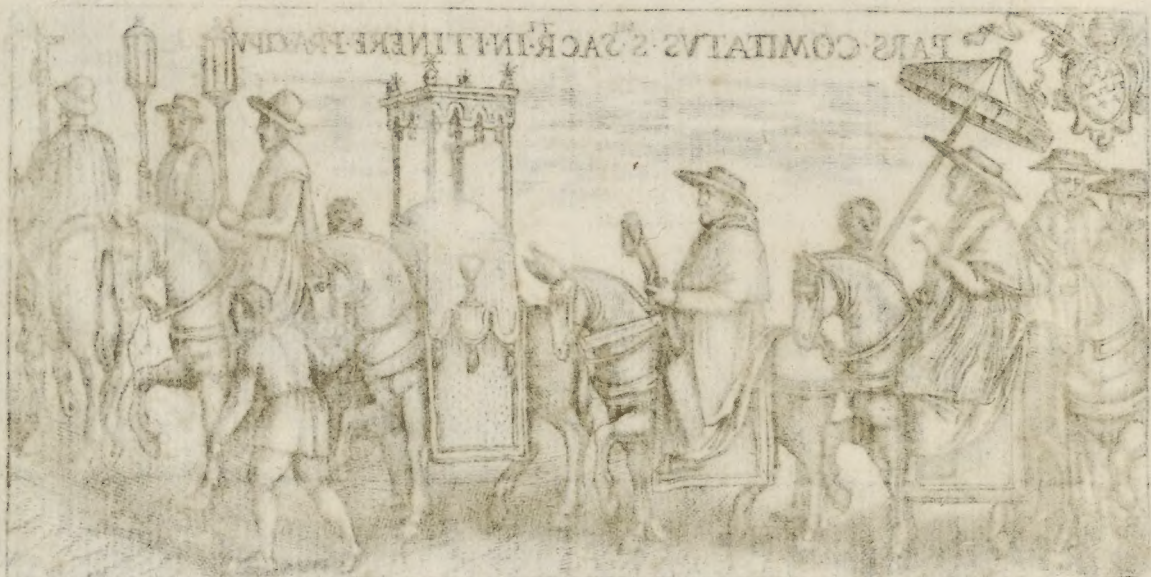 PARS·COMITATVS·S·SACR·IN·ITINERE·PRAECIPV